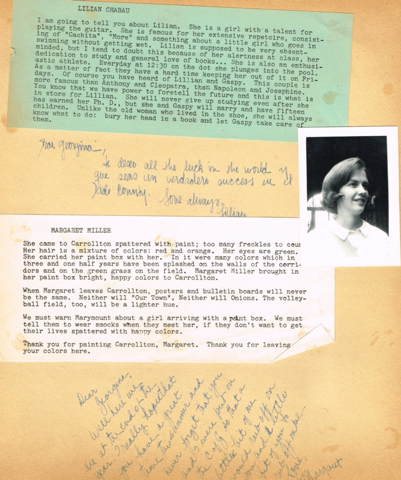 LILIAN CHABAU
I am going to tell you about Lilian. She is a girl with a talent for
playing the guitar. She is famous for her extensive repetoire, consist-
ing of "Cachita", "More" and something about a little girl who goes in
swimming without getting wet. Lilian is supposed to be very absent-
minded, but I tend to doubt this because of her alertness at class, her
dedication to study and general love of books... She is also an enthusi-
astic athlete. Everyday at 12:30 on the dot she plunges into the pool.
As a matter of fact they have a hard time keeping her out of it on Fri-
days. Of course you have heard of Lilian and Gaspy. This couple is
more famous than Anthony and Cleopatra, than Napoleon and Josephine.
You know that we have power to foretell the future and this is what is
in store for Lilian. She will never give up studying even after she
has earned her Ph. D., but she and Gaspy will marry and have fifteen
children. Unlike the old woman who lived in the shoe, she will always
know what to do: bury her head in a book and let Gaspy take care of
them.
Dear Georgina,
Te deseo all the luck in the world y
que seas un verdadero success en el
Dade County.
Love always,
Lilian
MARGARET MILLER
She came to Carrollton spattered with paint; too many freckles to coun
Her hair is a mixture of colors: red and orange. Her eyes are green.
She carried her paint box with her. In it were many colors which in
three and one half years have been splashed on the walls of the corri-
dors and on the green grass on the field. Margaret Miller brought in
her paint box bright, happy colors to Carrollton.
When Margaret leaves Carrollton, posters and bulletin boards will never
be the same. Neither will "Our Town". Neither will Onions. The volley-
ball field, too, will be a lighter hue.
We must warn Marymount about a girl arriving with a paint box. We must
tell them to wear smocks when they meet her, if they don't want to get
their lives spattered with happy colors.
Thank you for painting Carrollton, Margaret. Thank you for leaving
your colors here.
Dear Georgina,
Well here we
are at the end of the
year. I really hope that
you have a great
time this summer and
never forget that you
Margaret